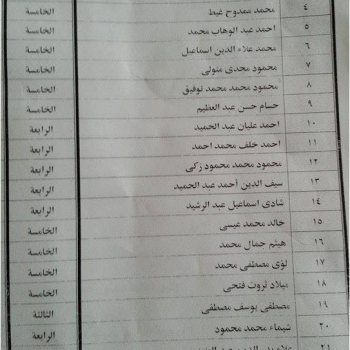 ٤ محمد ممدوح غيط الخامسة
٥ احمد عبد الوهاب محمد الخامسة
٦ محمد علاء الدين اسماعيل الخامسة
٧ محمود مجدى متولى الخامسة
٨ محمود محمد محمد توفيق الخامسة
٩ حسام حسن عبد العظيم الخامسة
١٠ احمد عليان عبد الحميد الرابعة
١١ احمد خلف محمد احمد الرابعة
١٢ محمود محمد محمود زكى الرابعة
١٣ سيف الدين أحمد عبد الحميد الرابعة
١٤ شادى اسماعيل عبد الرشيد الرابعة
١٥ خالد محمد عيسى الخامسة
١٦ هيثم جمال محمد الخامسة
١٧ لؤى مصطفى محمد الخامسة
١٨ ميلاد ثروت فتحى الخامسة
١٩ مصطفى يوسف مصطفى الثالثة
٢٠ شيماء محمد محمود الرابعة
٢١